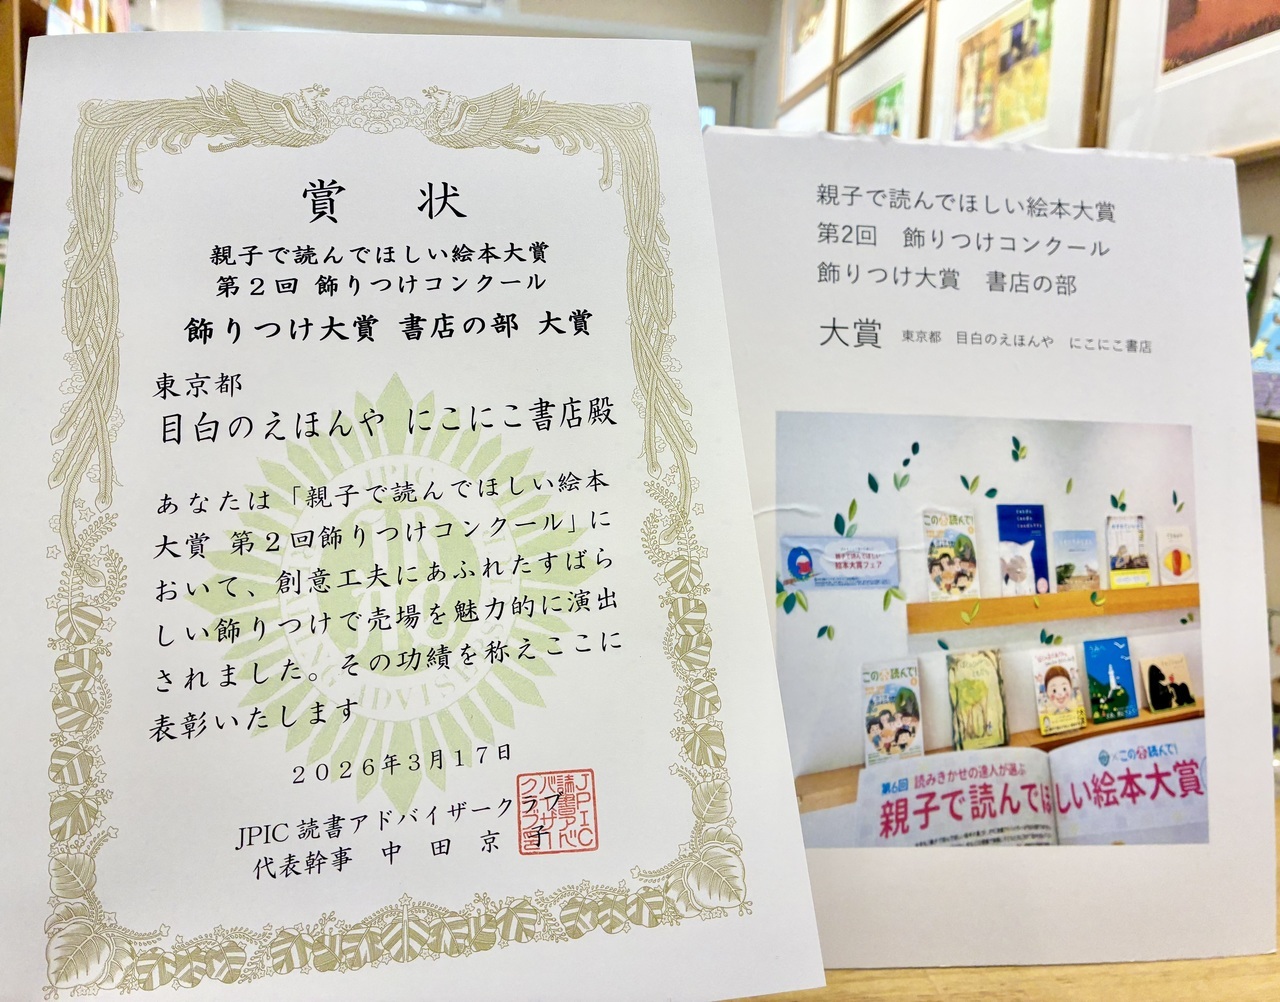 賞 状
親子で読んでほしい絵本大賞
第２回 飾りつけコンクール
飾りつけ大賞 書店の部 大賞
東京都
目白のえほんや にこにこ書店殿
あなたは「親子で読んでほしい絵本
大賞 第２回飾りつけコンクール」に
おいて、創意工夫にあふれたすばら
しい飾りつけで売場を魅力的に演出
されました。その功績を称えここに
表彰いたします
２０２６年３月１７日
JPIC 読書アドバイザークラブ
代表幹事 中田京子
親子で読んでほしい絵本大賞
第2回 飾りつけコンクール
飾りつけ大賞 書店の部
大賞 東京都 目白のえほんや にこにこ書店
親子で読んでほしい
絵本大賞フェア
この本読んで!
この本読んで!
この本読んで!
第6回 読みきかせの達人が選ぶ
親子で読んでほしい絵本大賞